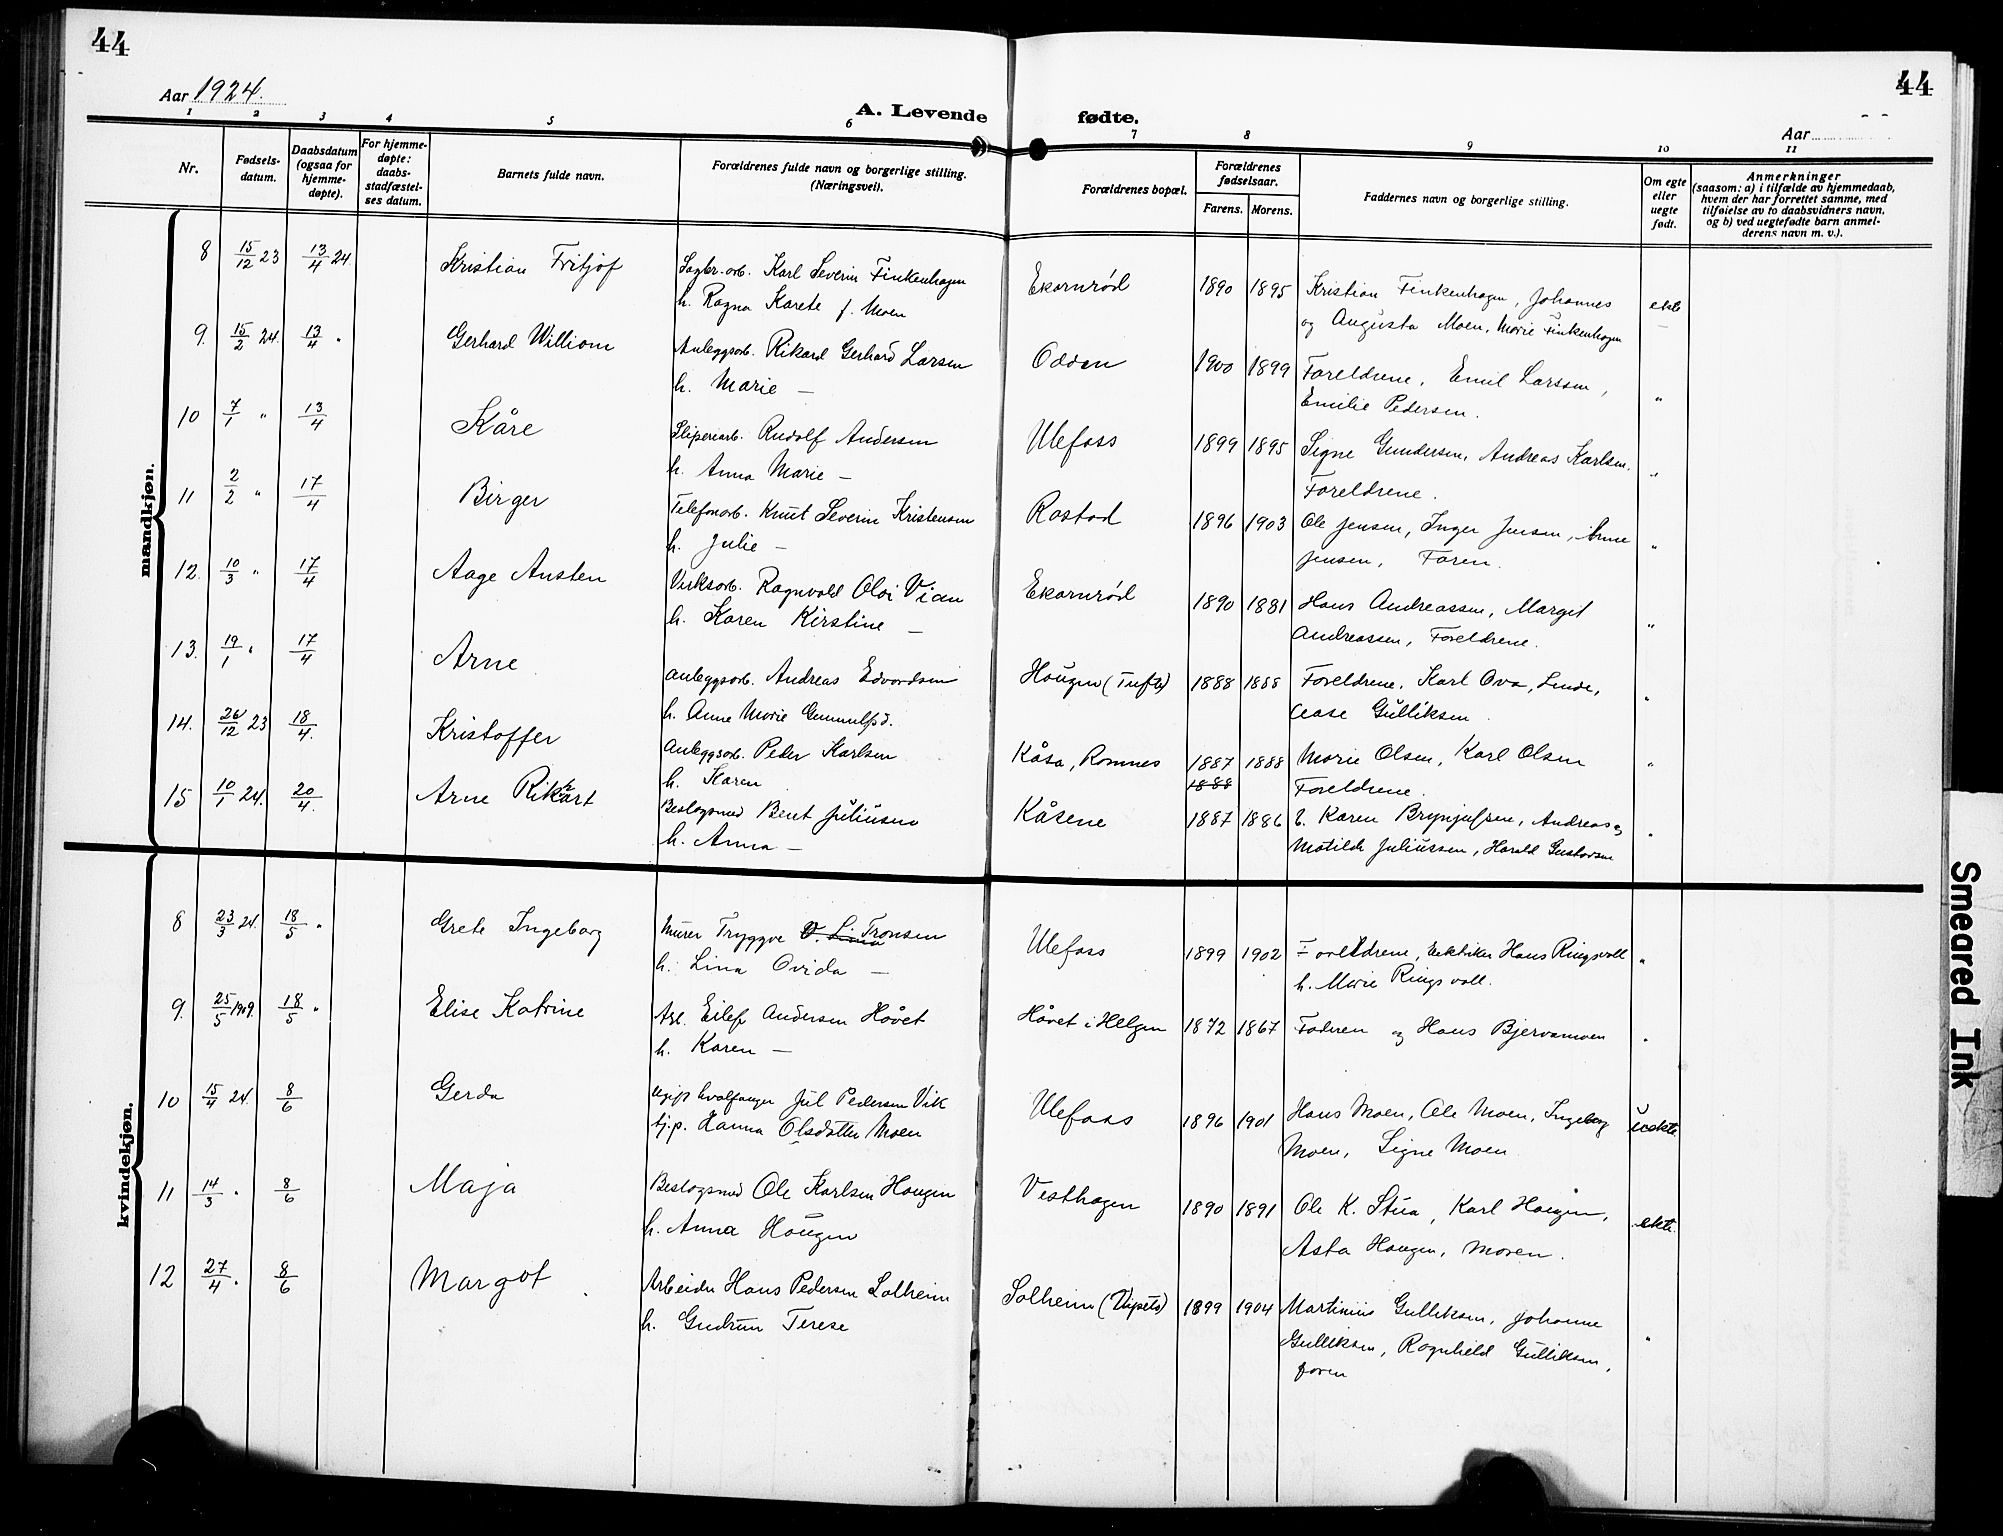 44
44
Aar 1924.
A. Levende fødte.
Aar
1 2 3 4 5 6 7 8 9 10 11
Nr.
Fødsels-
datum.
Daabsdatum
(ogsaa for
hjemme-
døpte).
For hjemme-
døpte:
daabs-
stadfæstel-
ses datum.
Barnets fulde navn.
Forældrenes fulde navn og borgerlige stilling.
(Næringsvei).
Forældrenes bopæl.
Forældrenes
fødselsaar.
Farens. Morens.
Faddernes navn og borgerlige stilling.
Om egte
eller
uegte
født.
Anmerkninger
(saasom: a) i tilfælde av hjemmedaab,
hvem der har forrettet samme, med
tilføielse av to daabsvidners navn,
og b) ved uegtefødte barn anmel-
derens navn m. v.).
mandkjøn.
8 15/12 23 13/4 24 Kristian Fritjof Sagbr.arb. Karl Severin Finkenhagen Ekornrød 1890 1895 Kristian Finkenhagen, Johannes ekte
h. Ragna Karete f. Moen og Augusta Moen, Marie Finkenhagen
9. 15/2 24. 13/4 " Gerhard William Anleggsarb. Rikard Gerhard Larsen Odden 1900 1899 Foreldrene, Emil Larssen, "
h. Marie — Emilie Pedersen.
10 7/1 " 13/4 Kåre Sliperiarb. Rudolf Andersen Ulefoss 1899 1895 Signe Gundersen, Andreas Karlsen, "
h. Anna Marie — Foreldrene.
11 2/2 " 17/4 Birger Telefonarb. Knut Severin Kristensen Rastad 1896 1903 Ole Jensen, Inger Jensen, Anne "
h. Julie — Jensen, Faren.
12. 10/3 " 17/4 Aage Austen Verksarb. Ragnvald Olai Vian Ekornrød 1890 1881 Hans Andreassen, Margit "
h. Karen Kirstine — Andreassen, Foreldrene.
13. 19/1 " 17/4 Arne Anleggsarb. Andreas Edvardsen Haugen (Tufte) 1888 1888 Foreldrene, Karl Ova, Linde, "
h. Anne Marie Aase Gulliksen
14. 26/12 23 18/4. Kristoffer Anleggsarb. Peder Karlsen Kåsa, Romnes 1887 1888 Marie Olsen, Karl Olsen "
h. Karen 1888 Foreldrene.
15 10/1 24. 20/4. Arne Rikart Beslagsmed Bent Juliusen Kåsene 1887 1886 Karen Brynjulfsen, Andreas og "
h. Anna — Matilde Juliussen, Harald Gustavsen
kvindekjøn.
8 23/3 24. 18/5 " Grete Ingeborg Murer Tryggve Tronsen Ulefoss 1899 1902 Foreldrene, Elektriker Hans Ringsvoll "
h. Lina Ovida — h. Marie Ringsvoll.
9. 25/5 1909. 18/5 " Elise Katrine Arb. Eilef Andersen Håvet Håvet i Helgen 1872 1867 Faderen og Hans Bjervamoen "
h. Karen —
10 15/4 24. 8/6 Gerda ugift hvalfanger Jul Pedersen Vik Ulefoss 1896 1901 Hans Moen, Ole Moen, Ingeborg uekte
tj.p. Hanna Olsdatter Moen Moen, Signe Moen
11 14/3 " 8/6 Maja Beslagsmed Ole Karlsen Haugen Vesthagen 1890 1891 Ole K. Stua, Karl Haugen, ekte
h. Anna Haugen Asta Haugen, moren.
12 27/4 " 8/6 Margot Arbeider Hans Pedersen Solheim Solheim (Vipeto) 1899 1904 Martinius Gulliksen, Johanne "
h. Gudrun Terese Gulliksen, Ragnhild Gulliksen,
faren
Smeared Ink